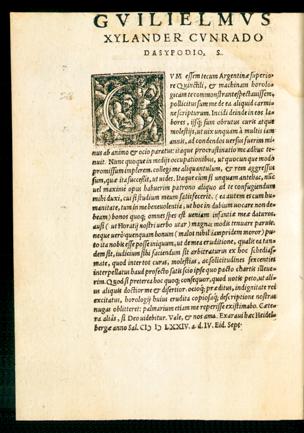 GVILIELMVS
XYLANDER CVNRADO
DASYPODIO, S.
CVM essem tecum Argentinæ superio
re Quinctili, & machinam horolo
gicam te commonstrante spectauissem,
pollicitus sum me de ea aliquid carmi
ne scripturum. Incidi deinde in eos la
bores, iisq; sum obrutus curis atque
molestijs, ut uix unquam à multis iam
annis, ad condendos versus fuerim mi
nus ab animo & ocio paratus: itaque procrastinatio me adhuc te-
nuit. Nunc quoque in medijs occupationibus, ut quocunque modo
promissum implerem. collegi me aliquantulum, & rem aggressus
sum, quæ ita successit, ut uides. Itaque cum si unquam anteà, nunc
uel maximè opus habuerim patrono aliquo ad te confugiendum
mihi duxi, cui si studium meum satisfecerit. (ea autem est eam hu-
manitate, tum in me beneuolentia, ut hoc in dubium uocare non de-
beam) bonos quoq; omnes spes est ueniam infantiæ meæ daturos,
ausi (ut Horatij nostri verbo utar) magna: modò tenuare paruis.
neque uerò quenquam bonum (malos nihil impridem moror) pu-
to ita nobis esse posse iniquum, ut de mea eruditione, qualis ea tan-
dem sit, iudicium sibi faciendum sit arbitraturus ex hoc schedias-
mate, quod inter tot curas, molestias, ac solicitudines sexcenties
interpellatus haud profectò satis scio ipse quo pacto chartis illeue-
rim. Quòd si præterea hoc quoq; consequor, quod uotis peto, ut ali-
us aliquis doctior me & disertior. ocioq; præditus, indignitate rei
excitatus, horologij huius erudita copiosaq; descriptione nostras
nugas obliteret: palmarium etiam me reperisse existimabo. Cæte-
ra aliàs, si Deo uidebitur. Vale, & nos ama. Exaraui hæc Heidel-
bergæ anno Sal. CIↃ IↃ LXXIV. a. d. IV. Eid. Sept.